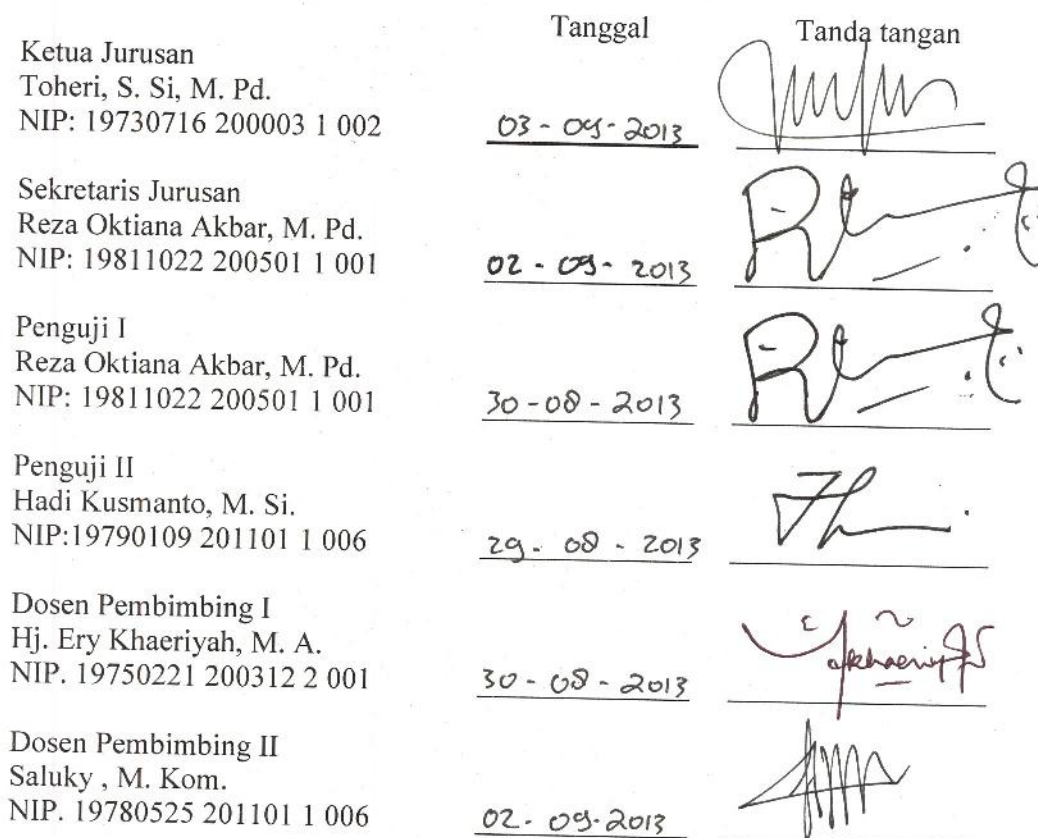 Tanggal Tanda tangan
Ketua Jurusan
Toheri, S. Si, M. Pd.
NIP: 19730716 200003 1 002 03 - 09 - 2013
Sekretaris Jurusan
Reza Oktiana Akbar, M. Pd.
NIP: 19811022 200501 1 001 02 - 09 - 2013
Penguji I
Reza Oktiana Akbar, M. Pd.
NIP: 19811022 200501 1 001 30 - 08 - 2013
Penguji II
Hadi Kusmanto, M. Si.
NIP:19790109 201101 1 006 29 - 08 - 2013
Dosen Pembimbing I
Hj. Ery Khaeriyah, M. A.
NIP. 19750221 200312 2 001 30 - 08 - 2013
Dosen Pembimbing II
Saluky , M. Kom.
NIP. 19780525 201101 1 006 02 - 09 - 2013